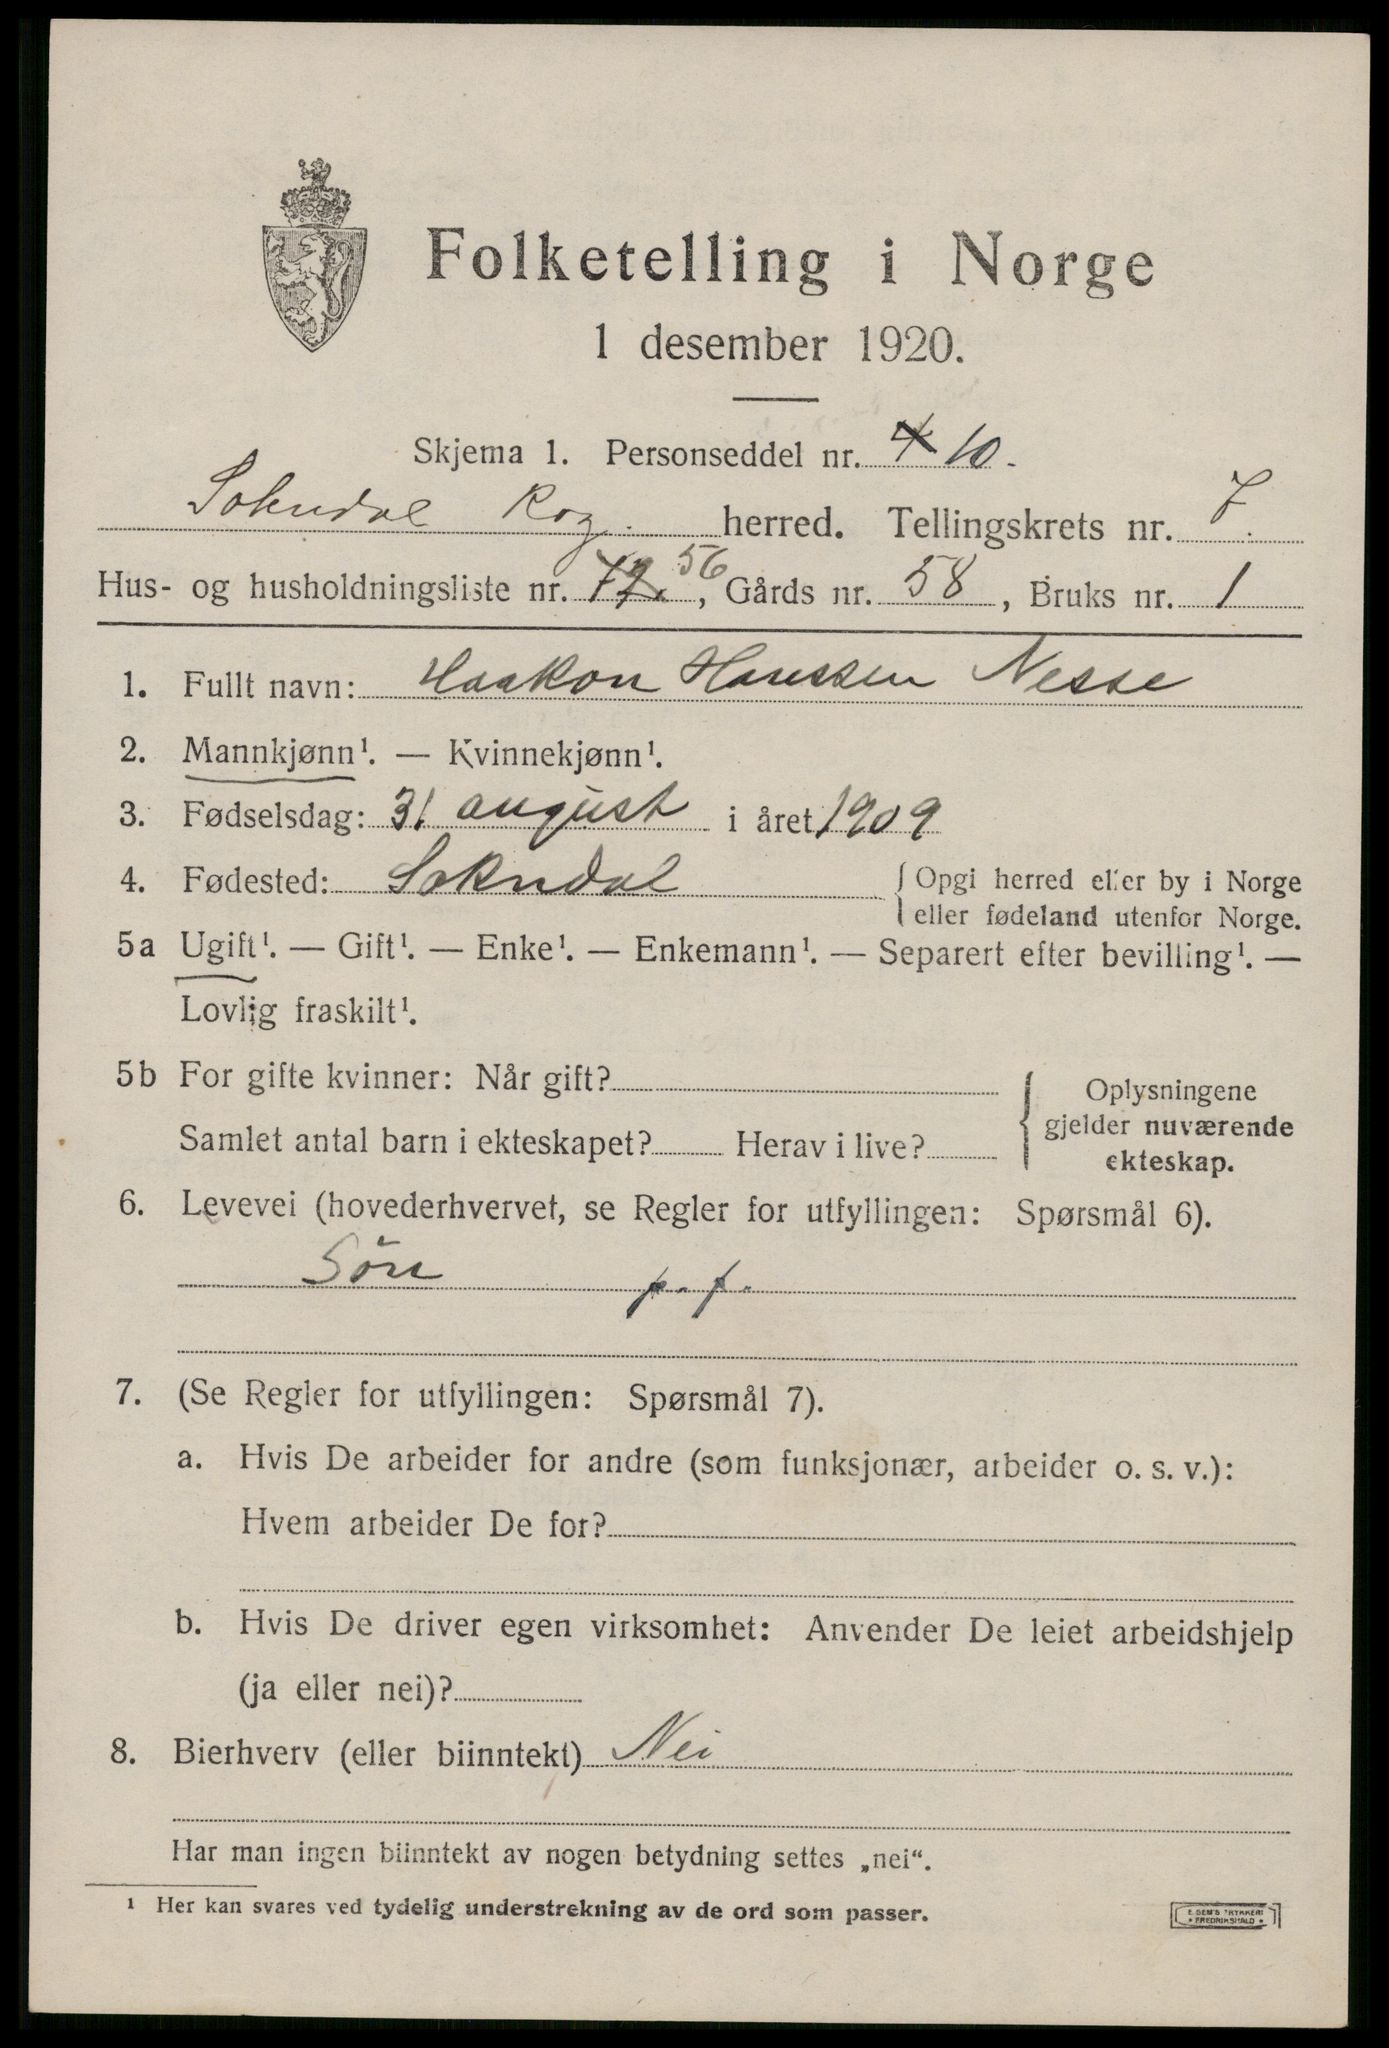 Folketelling i Norge
1 desember 1920.
Skjema 1. Personseddel nr. 4 10.
Sokndal Rog. herred. Tellingskrets nr. 7.
Hus- og husholdningsliste nr. 72. 56, Gårds nr. 58, Bruks nr. 1
1. Fullt navn: Haakon Hanssen Nesse
2. Mannkjønn¹. — Kvinnekjønn¹.
3. Fødselsdag: 31 august i året 1909
4. Fødested: Sokndal { Opgi herred eller by i Norge
eller fødeland utenfor Norge.
5a Ugift¹. — Gift¹. — Enke¹. — Enkemann¹. — Separert efter bevilling¹. —
Lovlig fraskilt¹.
5b For gifte kvinner: Når gift?
Samlet antal barn i ekteskapet? Herav i live?
{ Oplysningene
gjelder nuværende
ekteskap.
6. Levevei (hovederhvervet, se Regler for utfyllingen: Spørsmål 6).
Sön p. f.
7. (Se Regler for utfyllingen: Spørsmål 7).
a. Hvis De arbeider for andre (som funksjonær, arbeider o. s. v.):
Hvem arbeider De for?
b. Hvis De driver egen virksomhet: Anvender De leiet arbeidshjelp
(ja eller nei)?
8. Bierhverv (eller biinntekt) Nei
Har man ingen biinntekt av nogen betydning settes „nei“.
¹ Her kan svares ved tydelig understrekning av de ord som passer.
E. SEM'S TRYKKERI
• FREDRIKSHALD •